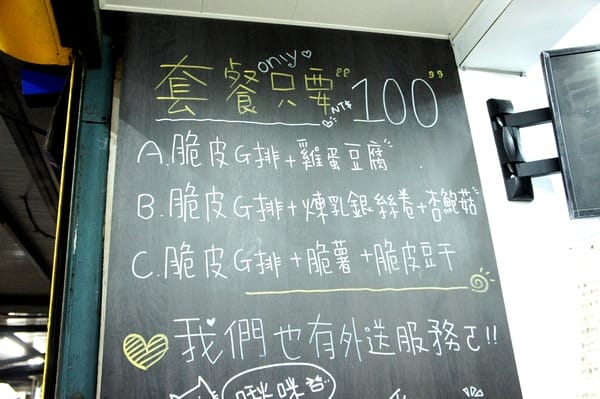 套餐only只要NT$"100"
A.脆皮G排+雞蛋豆腐
B.脆皮G排+煉乳銀絲卷+杏鮑菇
C.脆皮G排+脆薯+脆皮豆干
我們也有外送服務ㄛ!!
啾咪